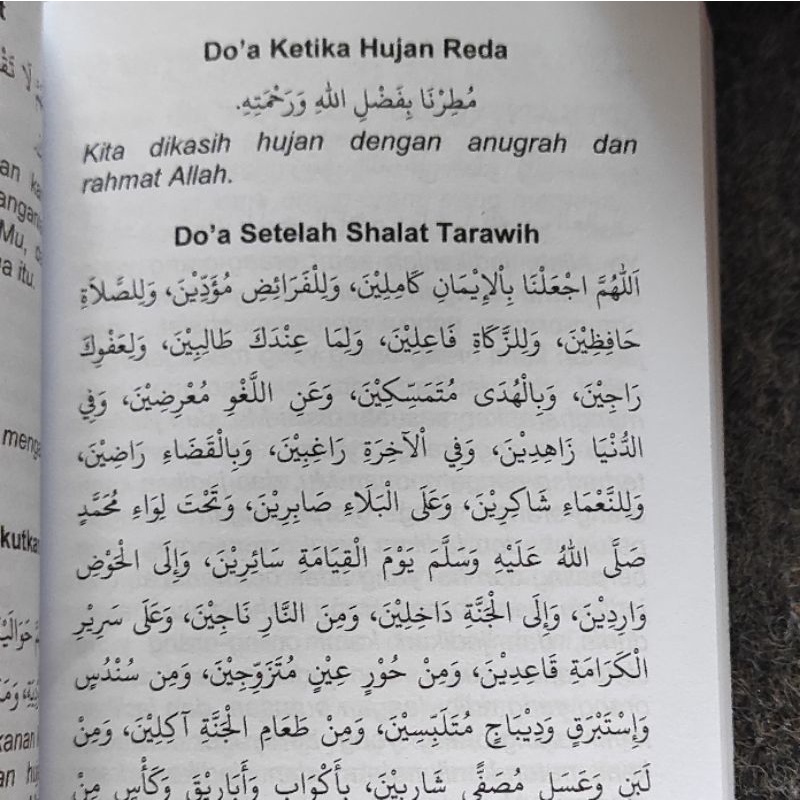 Do'a Ketika Hujan Reda
مُطِرْنَا بِفَضْلِ اللهِ وَرَحْمَتِهِ.
Kita dikasih hujan dengan anugrah dan
rahmat Allah.
Do'a Setelah Shalat Tarawih
اَللّٰهُمَّ اجْعَلْنَا بِاْلإِيْمَانِ كَامِلِيْنَ، وَلِلْفَرَائِضِ مُؤَدِّيْنَ، وَلِلصَّلاَةِ
حَافِظِيْنَ، وَلِلزَّكَاةِ فَاعِلِيْنَ، وَلِمَا عِنْدَكَ طَالِبِيْنَ، وَلِعَفْوِكَ
رَاجِيْنَ، وَبِالْهُدَى مُتَمَسِّكِيْنَ، وَعَنِ اللَّغْوِ مُعْرِضِيْنَ، وَفِي
الدُّنْيَا زَاهِدِيْنَ، وَفِي اْلآخِرَةِ رَاغِبِيْنَ، وَبِالْقَضَاءِ رَاضِيْنَ،
وَلِلنَّعْمَاءِ شَاكِرِيْنَ، وَعَلَى الْبَلَاءِ صَابِرِيْنَ، وَتَحْتَ لِوَاءِ مُحَمَّدٍ
صَلَّى اللهُ عَلَيْهِ وَسَلَّمَ يَوْمَ الْقِيَامَةِ سَائِرِيْنَ، وَإِلَى الْحَوْضِ
وَارِدِيْنَ، وَإِلَى الْجَنَّةِ دَاخِلِيْنَ، وَمِنَ النَّارِ نَاجِيْنَ، وَعَلَى سَرِيْرِ
الْكَرَامَةِ قَاعِدِيْنَ، وَمِنْ حُوْرٍ عِيْنٍ مُتَزَوِّجِيْنَ، وَمِن سُنْدُسٍ
وَإِسْتَبْرَقٍ وَدِيْبَاجٍ مُتَلَبِّسِيْنَ، وَمِنْ طَعَامِ الْجَنَّةِ آكِلِيْنَ، وَمِنْ
لَبَنٍ وَعَسَلٍ مُصَفًّى شَارِبِيْنَ، بِأَكْوَابٍ وَأَبَارِيْقَ وَكَأْسٍ مِنْ